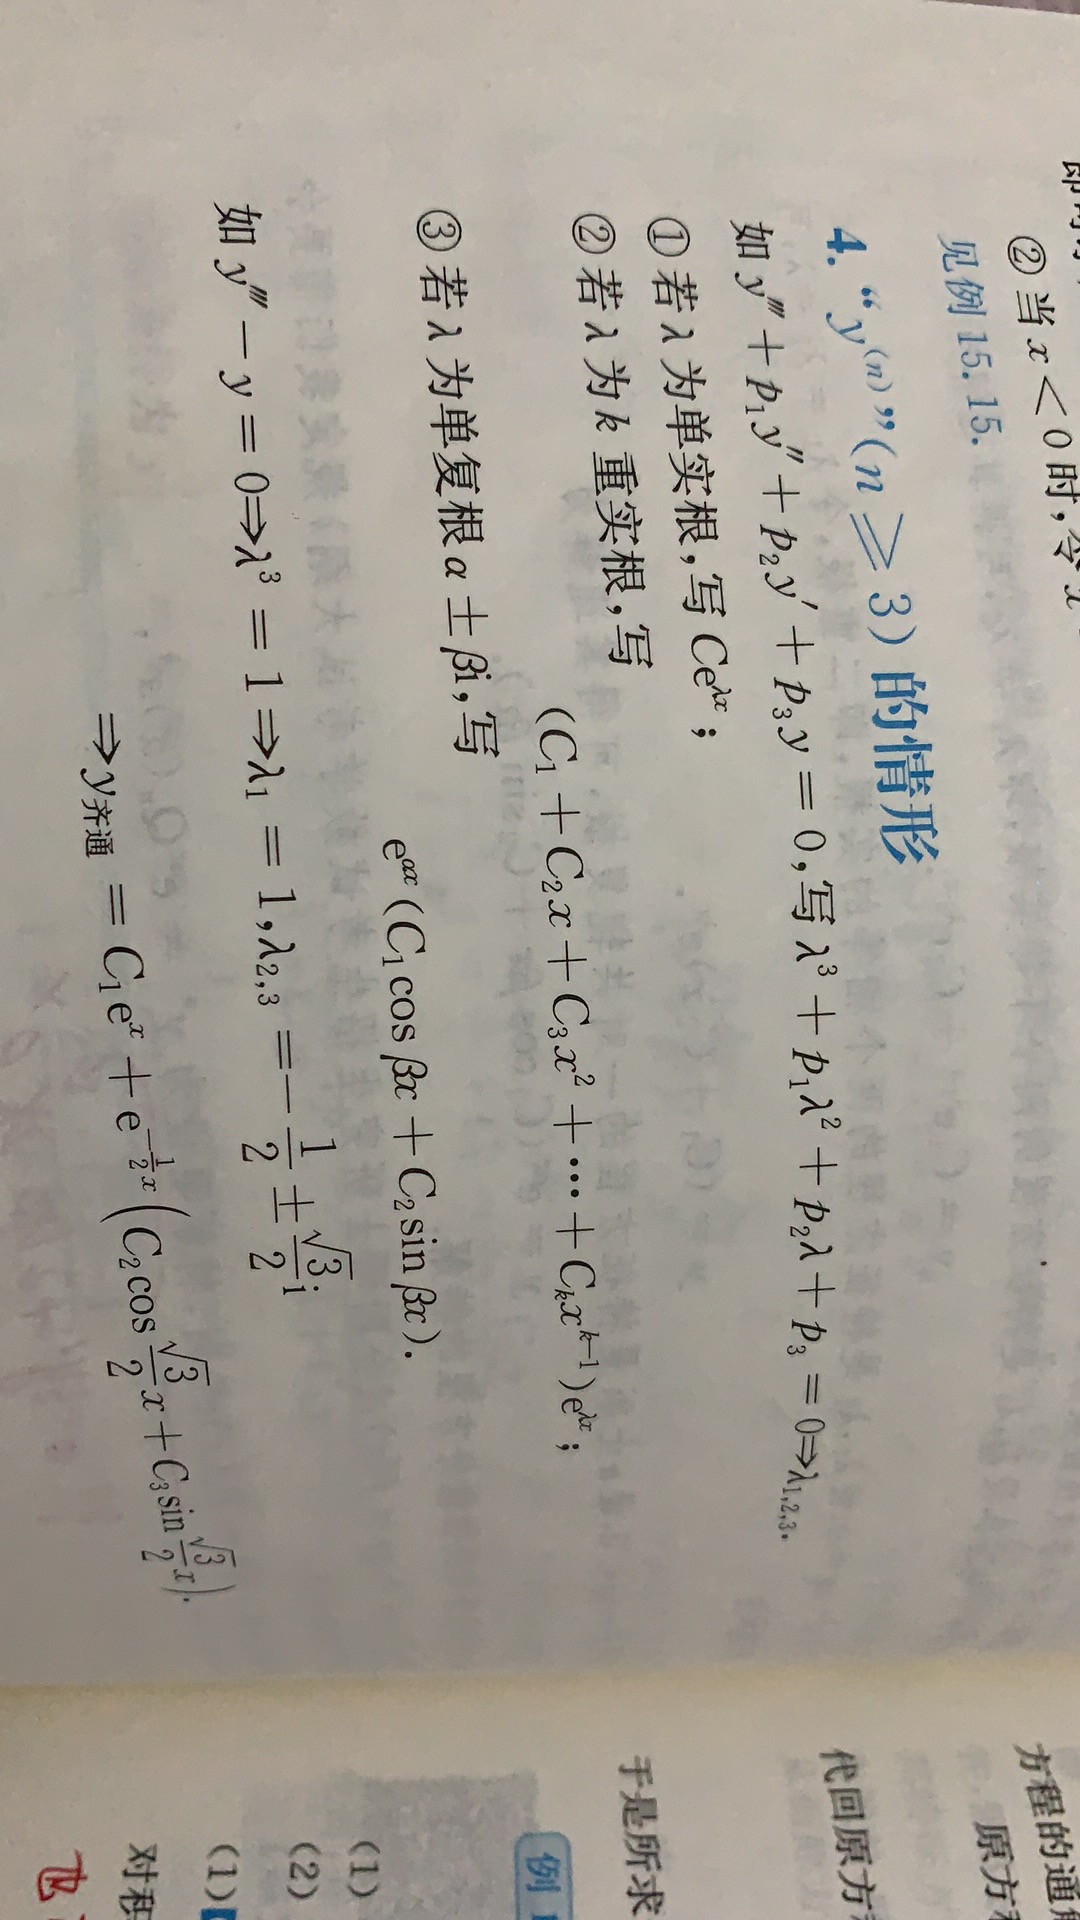 ②当 x < 0 时,令 x
见例 15.15.
4. “y⁽ⁿ⁾”(n ⩾ 3)的情形
如 y‴ + p₁y″ + p₂y′ + p₃y = 0,写 λ³ + p₁λ² + p₂λ + p₃ = 0⇒λ₁,₂,₃.
①若 λ 为单实根,写 Ce^{λx};
②若 λ 为 k 重实根,写
(C₁ + C₂x + C₃x² + ⋯ + Cₖx^{k−1})e^{λx};
③若 λ 为单复根 α ± βi,写
e^{αx}(C₁cos βx + C₂sin βx).
如 y‴ − y = 0⇒λ³ = 1⇒λ₁ = 1,λ₂,₃ = −\frac{1}{2} ± \frac{√3}{2}i
⇒y齐通 = C₁eˣ + e^{−\frac{1}{2}x}(C₂cos \frac{√3}{2}x + C₃sin \frac{√3}{2}x).
方程的通解
原方
代回原方
于是所求
例
(1)
(2)
(1)【
对积